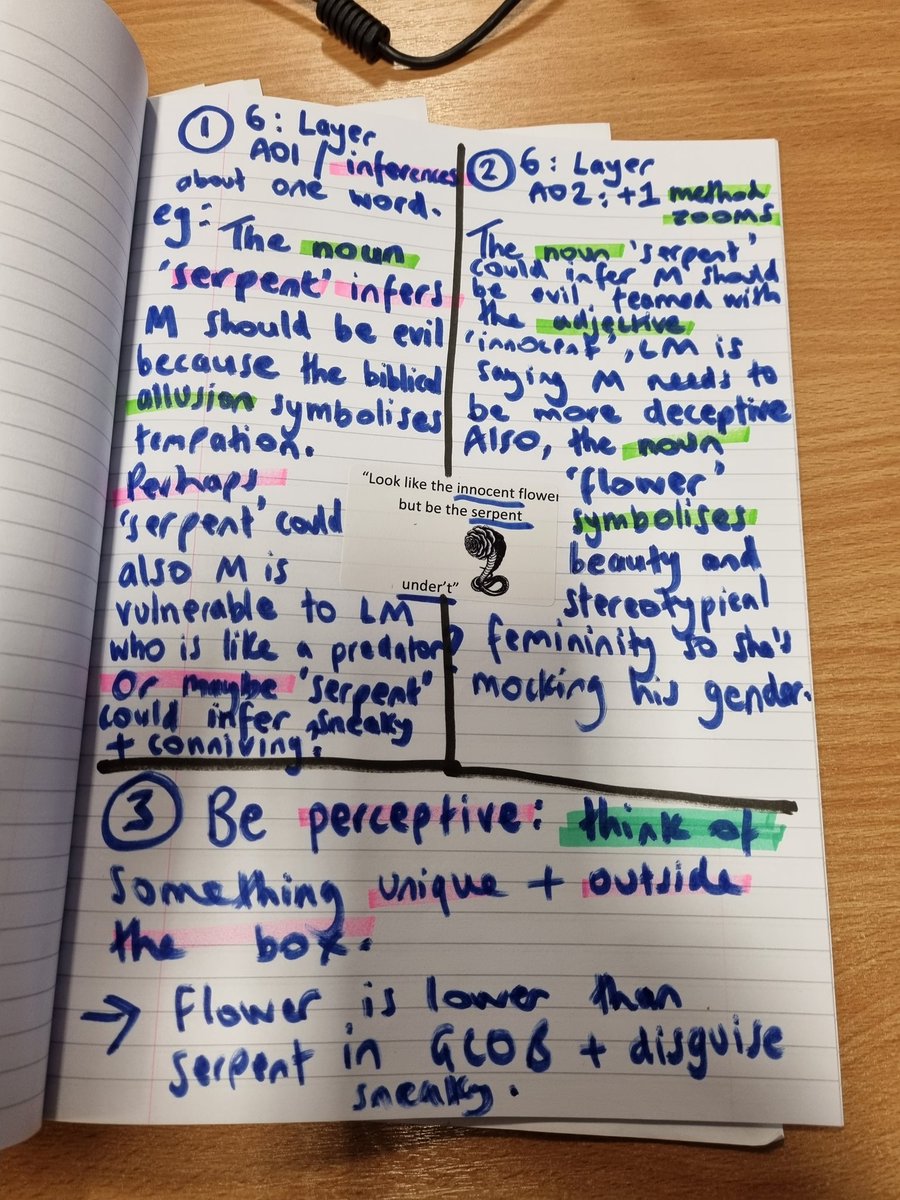 ① 6: Layer
AO1 / inferences
about one word.
eg: The noun
'serpent' infers
M should be evil
because the biblical
allusion symbolises
tempation.
Perhaps
'serpent' could
also M is
vulnerable to LM
who is like a predator?
Or maybe "serpent"
could infer sneaky
+ conniving.
② 6: Layer
AO2: +1 method
zooms
The noun 'serpent'
could infer M should
be evil teamed with
the adjective
'innocent', LM is
saying M needs to
be more deceptive
Also, the noun
'flower'
symbolises
beauty and
stereotypical
femininity so she's
mocking his gender.
"Look like the innocent flower
but be the serpent
under't"
③ Be perceptive: think of
something unique + outside
the box.
→ Flower is lower than
serpent in GCOB + disguise
sneaky.